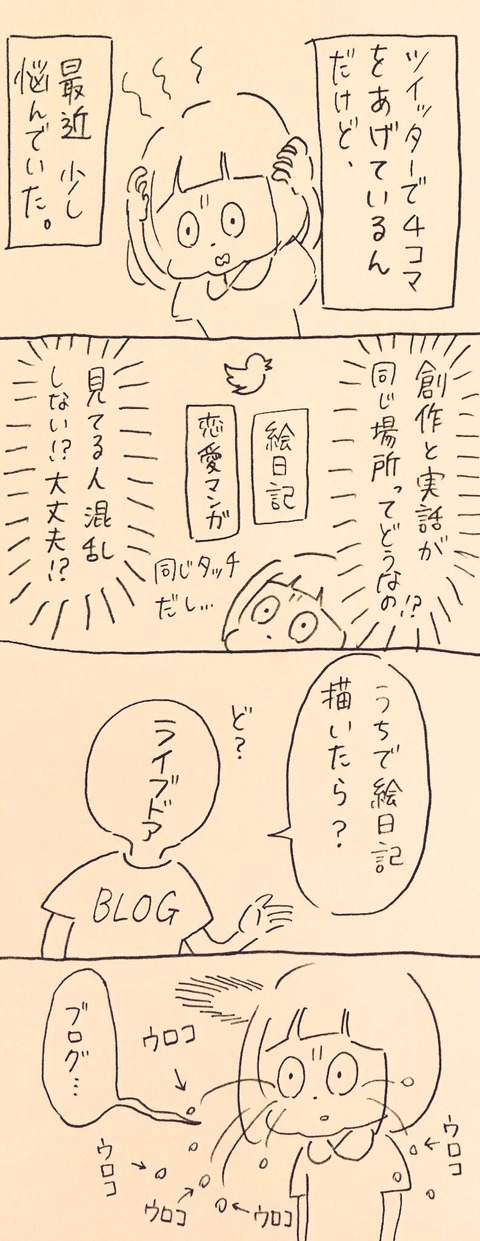 ツイッターで4コマ
をあげているん
だけど、
最近 少し
悩んでいた。
創作と実話が
同じ場所ってどうなの!?
絵日記
恋愛マンガ
同じタッチ
だし…
見てる人 混乱
しない!? 大丈夫!?
うちで絵日記
描いたら？
ど？
ライブドア
BLOG
ブログ…
ウロコ
ウロコ
ウロコ
ウロコ
ウロコ